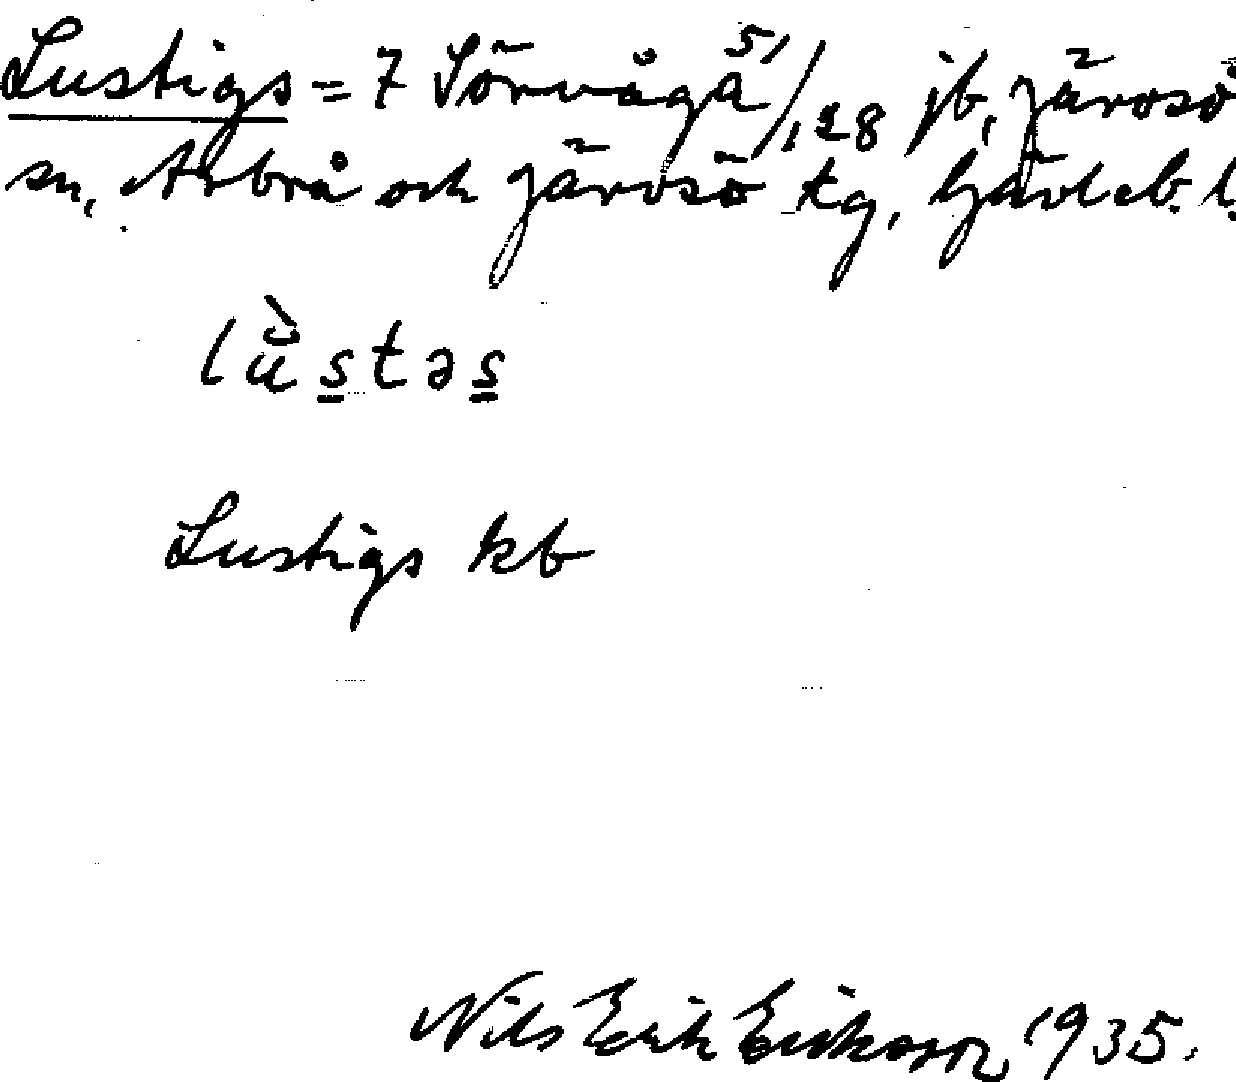 Lustigs = 7 Sörvågå 51/128 jb, Järvsö
sn, Arbrå och Järvsö tg, Gävleb. l.
lùstəs
Lustigs kb
Nils Erik Eriksson 1935.